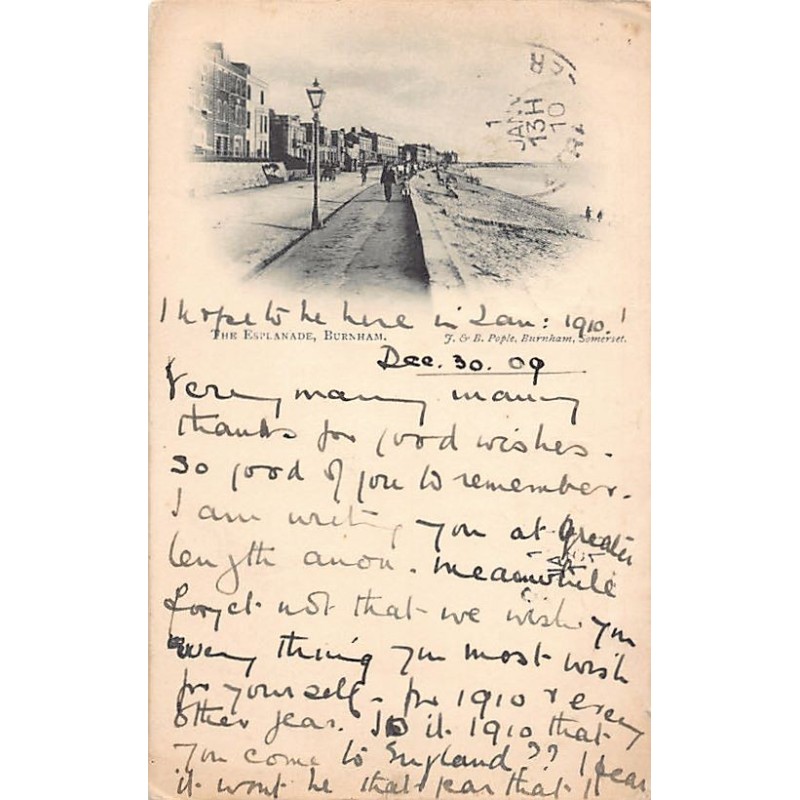 1 JANV
13H
10
I hope to be here in Jan: 1910!
THE ESPLANADE, BURNHAM. J. & B. Pople, Burnham, Somerset.
Dec. 30. 09
Very many many
thanks for good wishes.
So good of you to remember.
I am writing you at greater
length anon. Meanwhile
forget not that we wish you
every thing you most wish
for yourself - for 1910 & every
other year. Is it 1910 that
you come to England?? I fear
it wont be that year that I